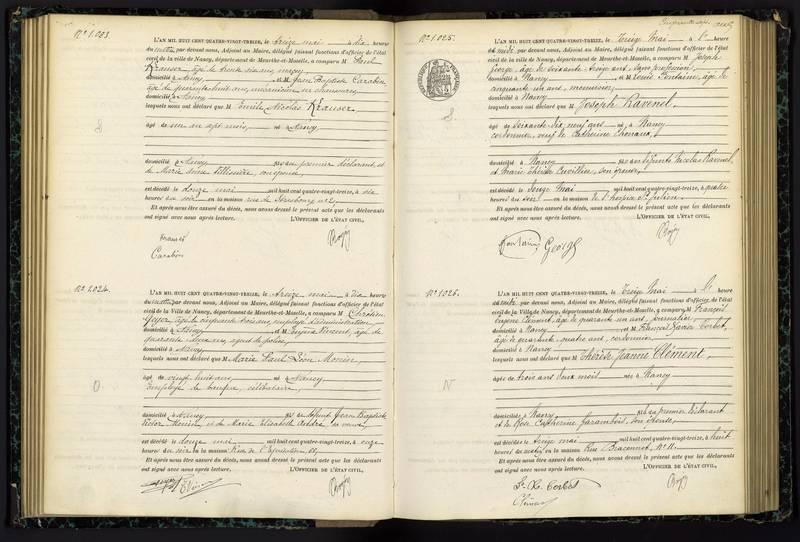 N° 1.023.
L'AN MIL HUIT CENT QUATRE-VINGT-TREIZE, le treize mai à dix heure
du matin par devant nous, Adjoint au Maire, délégué faisant fonctions d'officier de l'état
civil de la ville de Nancy, département de Meurthe-et-Moselle, a comparu M Paul
Krauser âgé de trente six ans,
domicilié à Nancy, et M Jean Baptiste Carabin
âgé de quarante huit ans,
domicilié à Nancy
lesquels nous ont déclaré que M Emile Nicolas Krauser
âgé de un an sept mois, né à Nancy
domicilié à Nancy fils au premier déclarant, et
de Marie son épouse,
est décédé le douze mai mil huit cent quatre-vingt-treize, à dix
heures du soir en la maison rue de Strasbourg n° 2,
Et après nous être assuré du décès, nous avons dressé le présent acte que les déclarants
ont signé avec nous après lecture. L'OFFICIER DE L'ÉTAT CIVIL,
Krauser
Carabin
N° 1.024.
L'AN MIL HUIT CENT QUATRE-VINGT-TREIZE, le treize mai à dix heure
du matin par devant nous, Adjoint au Maire, délégué faisant fonctions d'officier de l'état
civil de la Ville de Nancy, département de Meurthe-et-Moselle, a comparu M Chrétien
âgé de cinquante trois ans, employé d'administration
domicilié à Nancy et M Vincent, âgé de
quarante ans, agent de police,
domicilié à Nancy
lesquels nous ont déclaré que M Marie Paul Léon
âgé de vingt huit ans, né à Nancy
employé de banque, célibataire,
domicilié à Nancy fils de défunt Jean Baptiste
Victor et de Marie Elisabeth sa veuve
est décédé le douze mai mil huit cent quatre-vingt-treize, à onze
heures du soir en la maison Rue de
Et après nous être assuré du décès, nous avons dressé le présent acte que les déclarants
ont signé avec nous après lecture. L'OFFICIER DE L'ÉTAT CIVIL,
N° 1.025.
L'AN MIL HUIT CENT QUATRE-VINGT-TREIZE, le treize Mai à heure
de midi, par devant nous, Adjoint au Maire, délégué faisant fonctions d'officier de l'état
civil de la ville de Nancy, département de Meurthe-et-Moselle, a comparu M Joseph
George, âgé de soixante treize ans, sans profession,
domicilié à Nancy et M Louis Fontaine, âgé de
cinquante un ans, menuisier,
domicilié à Nancy
lesquels nous ont déclaré que M Joseph Ravenel,
âgé de soixante dix neuf ans né à Nancy
cordonnier, veuf de Catherine
domicilié à Nancy fils des défunts Nicolas Ravenel,
et Marie Thérèse Cuvillier, son épouse,
est décédé le douze mai mil huit cent quatre-vingt-treize, à quatre
heures du soir en la maison de l'hospice St Julien
Et après nous être assuré du décès, nous avons dressé le présent acte que les déclarants
ont signé avec nous après lecture. L'OFFICIER DE L'ÉTAT CIVIL,
Fontaine
George
N° 1.026.
L'AN MIL HUIT CENT QUATRE-VINGT-TREIZE, le treize Mai à heure
par devant nous, Adjoint au Maire, délégué faisant fonctions d'officier de l'état
civil de la Ville de Nancy, département de Meurthe-et-Moselle, a comparu M François
Eugène Clément, âgé de quarante un ans, journalier,
domicilié à Nancy et M François Xavier Corbet,
âgé de quarante quatre ans, cordonnier
domicilié à Nancy
lesquels nous ont déclaré que M Thérèse Jeanne Clément,
âgée de trois ans deux mois née à Nancy
domiciliée à Nancy fille du premier déclarant
et de Rose Catherine son épouse,
est décédée le treize mai mil huit cent quatre-vingt-treize, à huit
heures du matin en la maison Rue Braconnot, N° 11.
Et après nous être assuré du décès, nous avons dressé le présent acte que les déclarants
ont signé avec nous après lecture. L'OFFICIER DE L'ÉTAT CIVIL,
Corbet
Clément